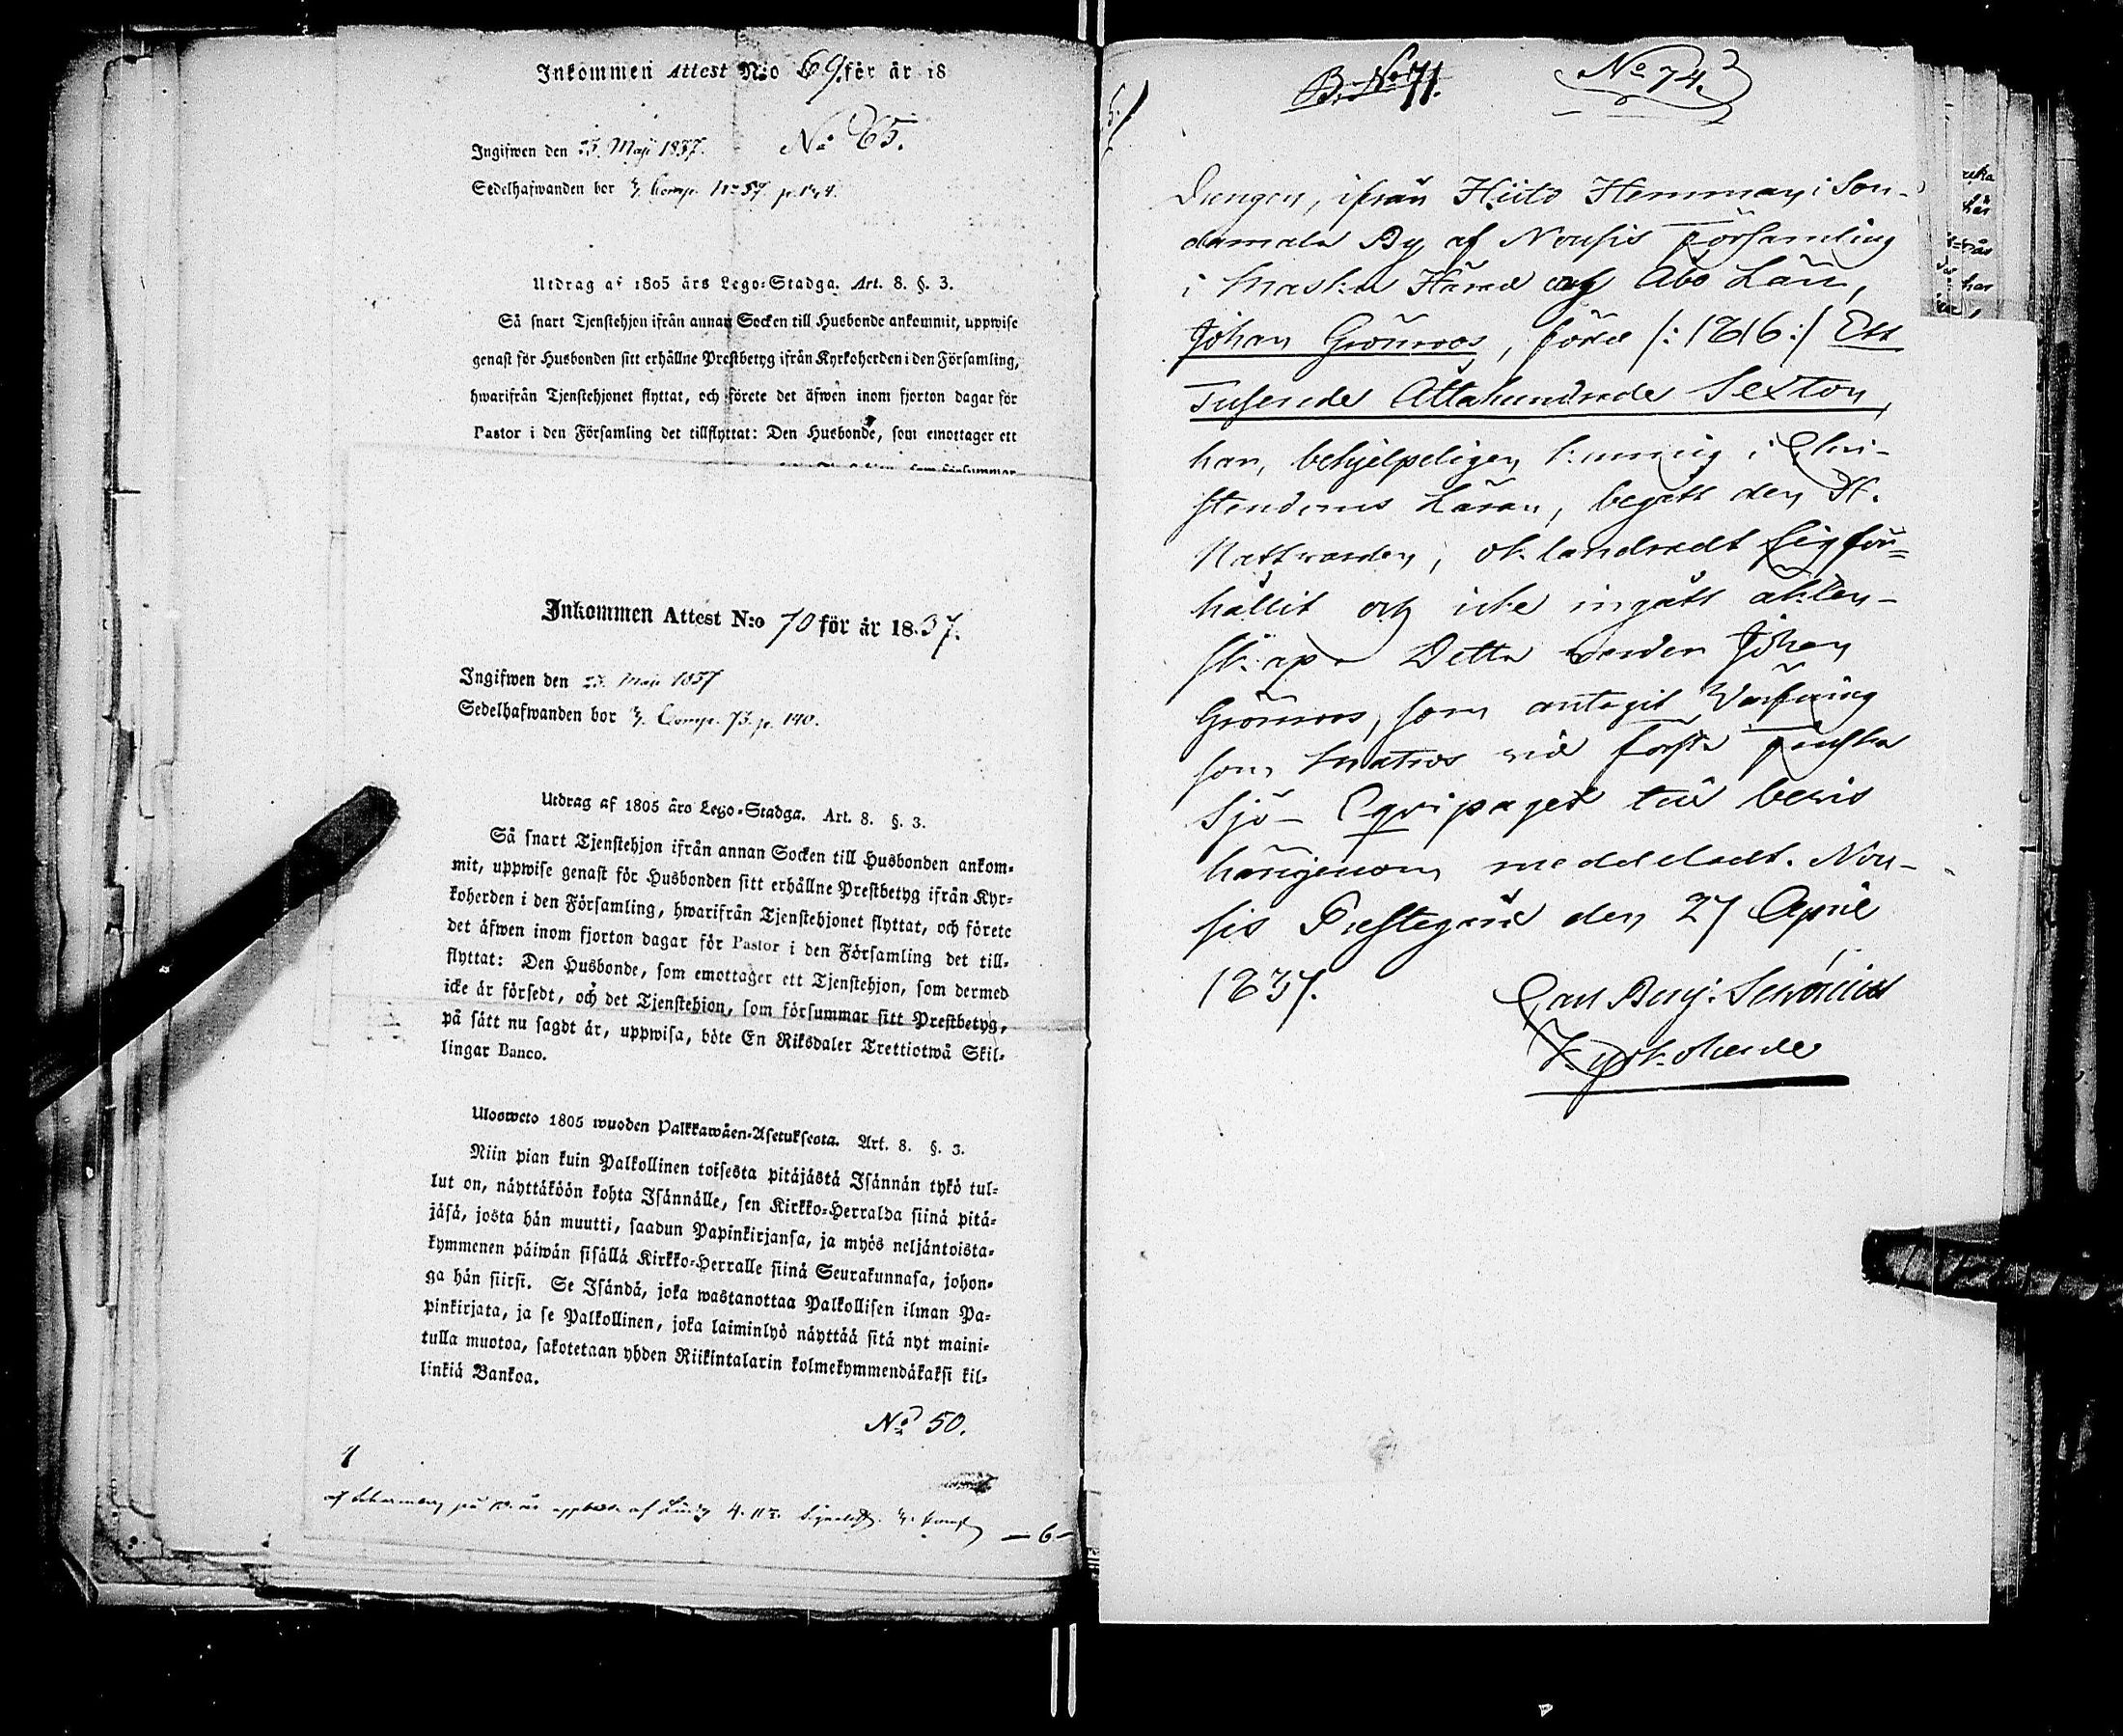 Inkommen Attest N:o 69 för år 18
Ingifwen den 23. Maji 1837. No 65.
Sedelhafwanden bor 2/. Comp. No 57 p. 124.
Utdrag af 1805 års Lego-Stadga. Art. 8. §. 3.
Så snart Tjenstehjon ifrån annan Socken till Husbonde ankommit, uppwise
genast för Husbonden sitt erhållne Prestbetyg ifrån Kyrkoherden i den Församling,
hwarifrån Tjenstehjonet flyttat, och förete det äfwen inom fjorton dagar för
Pastor i den Församling det tillflyttat: Den Husbonde, som emottager ett
Inkommen Attest N:o 70 för år 18.37.
Ingifwen den 23. Maji 1837
Sedelhafwanden bor 2/. Comp. 73. p. 140.
Utdrag af 1805 års Lego-Stadga. Art. 8. §. 3.
Så snart Tjenstehjon ifrån annan Socken till Husbonden ankom-
mit, uppwise genast för Husbonden sitt erhållne Prestbetyg ifrån Kyr-
koherden i den Församling, hwarifrån Tjenstehjonet flyttat, och förete
det äfwen inom fjorton dagar för Pastor i den Församling det till-
flyttat: Den Husbonde, som emottager ett Tjenstehjon, som dermed
icke är försedt, och det Tjenstehjon, som försummar sitt Prestbetyg,
på sätt nu sagdt är, uppwisa, böte En Riksdaler Trettiotwå Skil-
lingar Banco.
Ulosweto 1805 wuoden Palkkawäen-Asetuksesta. Art. 8. §. 3.
Niin pian kuin Palkollinen toisesta pitäjästä Isännän tykö tul-
lut on, näyttäköön kohta Isännälle, sen Kirkko-Herralda siinä pitä-
jäsä, josta hän muutti, saadun Papinkirjansa, ja myös neljäntoista-
kymmenen päiwän sisällä Kirkko-Herralle siinä Seurakunnasa, johon-
ga hän siirsi. Se Isändä, joka wastanottaa Palkollisen ilman Pa-
pinkirjata, ja se Palkollinen, joka laiminlyö näyttää sitä nyt maini-
tulla muotoa, sakotetaan yhden Riikintalarin kolmekymmendäkaksi kil-
linkiä Bankoa.
No 50.
— 6 —
B. No 71. No 74.
Drengen, ifrån Hiito Hemman i Son-
damala By af Nousis Församling
i Masku Härad och Åbo Län,
Johan Grönroos, född /: 1816 :/ Ett
Tusende Åttahundrade Sexton,
har, behjelpeligen kunnig i Chri-
stendoms Läran, begått den H.
Nattvarden, oklandradt sig för-
hållit och icke ingått äkten-
skap. Detta warder Johan
Grönroos, som antagit Värfning
som Matros vid första Finska
Sjö-Eqvipaget till bevis
härigenom meddeladt. Nou-
sis Prestegård den 27 April
1837. Carl Benj:
Kyrkoherde